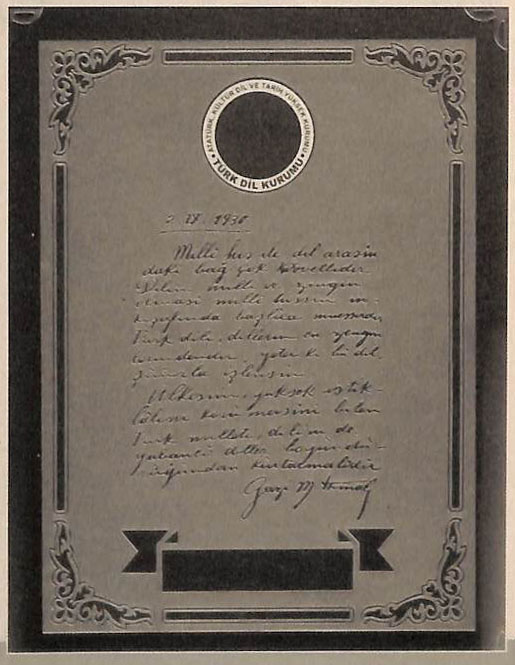 ATATÜRK KÜLTÜR, DİL VE TARİH YÜKSEK KURUMU
• TÜRK DİL KURUMU •
2. IX. 1930
Milli his ile dil arasın
daki bağ çok kuvvetlidir
Dilin milli ve zengin
olması milli hissin in-
kişafında başlıca müessirdir
Türk dili, dillerin en zengin
lerindendir, yeter ki bu dil,
şuurla işlensin.
Ülkesini, yüksek istik-
lâlini korumasını bilen
Türk milleti, dilini de
yabancı diller boyundu-
ruğundan kurtarmalıdır
Gazi M. Kemal